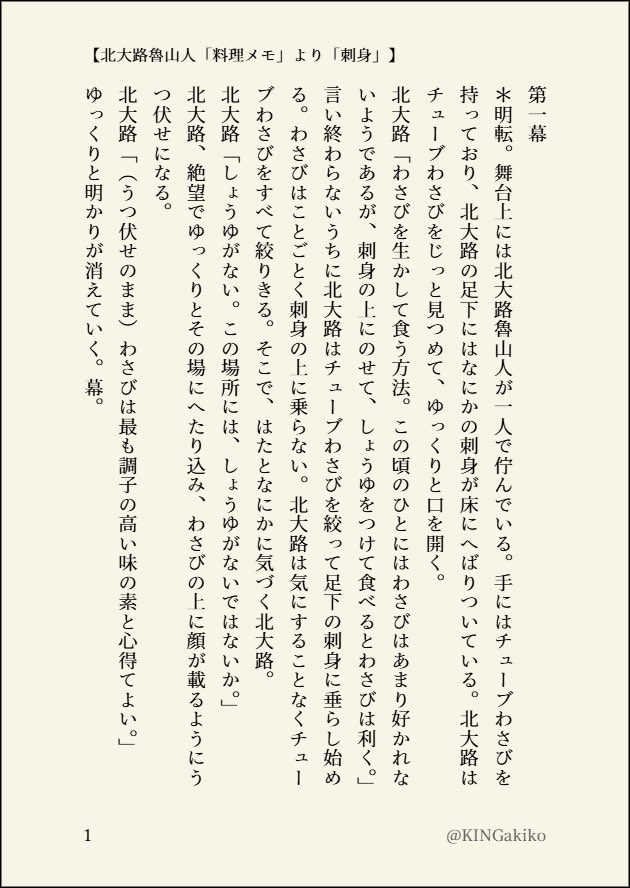 【北大路魯山人「料理メモ」より「刺身」】
第一幕
＊明転。舞台上には北大路魯山人が一人で佇んでいる。手にはチューブわさびを
持っており、北大路の足下にはなにかの刺身が床にへばりついている。北大路は
チューブわさびをじっと見つめて、ゆっくりと口を開く。
北大路「わさびを生かして食う方法。この頃のひとにはわさびはあまり好かれな
いようであるが、刺身の上にのせて、しょうゆをつけて食べるとわさびは利く。」
言い終わらないうちに北大路はチューブわさびを絞って足下の刺身に垂らし始め
る。わさびはことごとく刺身の上に乗らない。北大路は気にすることなくチュー
ブわさびをすべて絞りきる。そこで、はたとなにかに気づく北大路。
北大路「しょうゆがない。この場所には、しょうゆがないではないか。」
北大路、絶望でゆっくりとその場にへたり込み、わさびの上に顔が載るようにう
つ伏せになる。
北大路「（うつ伏せのまま）わさびは最も調子の高い味の素と心得てよい。」
ゆっくりと明かりが消えていく。幕。
1
@KINGakiko